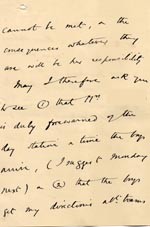 cannot be met, or the
consequences whatever they
are will be her responsibility
May I therefore ask you
to see ① that
is duly forwarded of the
day station & time the boys
arrive, (I suggest Monday
next) & ② that the boys
get my directions abt. trams